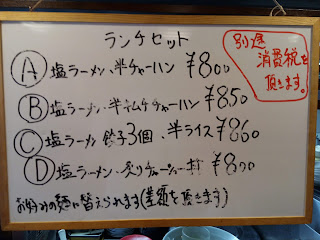 ランチセット
別途
消費税を
頂きます。
Ⓐ 塩ラーメン、半チャーハン ¥800
Ⓑ 塩ラーメン、半キムチチャーハン ¥850
Ⓒ 塩ラーメン 餃子3個、半ライス ¥860
Ⓓ 塩ラーメン、炙りチャーシュー丼 ¥800
お好みの麺に替えられます(差額を頂きます)